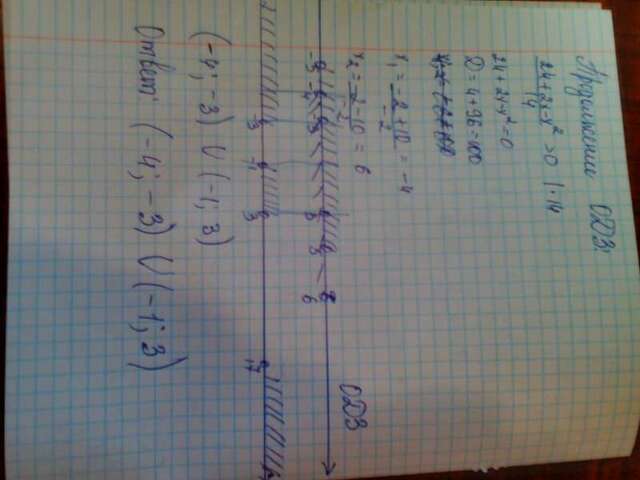 Продолжение ОДЗ:
24+2x-x² / 14 > 0 | · 14
24+2x-x²=0
D=4+96=100
x₁ = -2+10 / -2 = -4
x₂ = -2-10 / -2 = 6
ОДЗ
-4 -3 3 6
-3 -1 3
(-4; -3) U (-1; 3)
Ответ: (-4; -3) U (-1; 3)